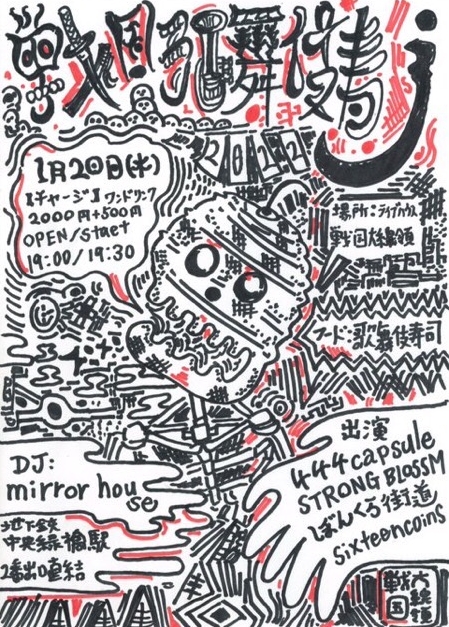 戦国歌舞伎j
2021
1月20日(水)
【チャージ】ワンドリンク
2000円+500円
OPEN/Start
19:00/19:30
場所:ライブハウス
戦国大統領
フード:歌舞伎寿司
DJ:
mirror house
地下鉄
中央線緑橋駅
2番出口直結
出演
444capsule
STRONG BLOSSM
ばんくる街道
sixteencoins
戦国
大統領